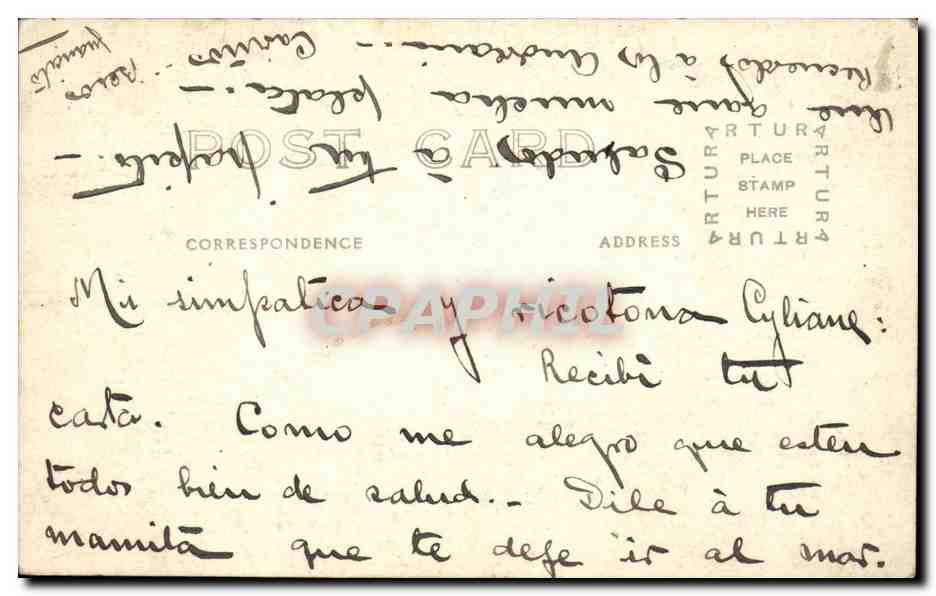 POST CARD
CORRESPONDENCE
ADDRESS
ARTURA
ARTURA
PLACE
STAMP
HERE
ARTURA
ARTURA
CPAPHIL
Mi simpatica y ricotona Cyliane:
Recibi tu
carta. Como me alegro que esten
todos bien de salud. - Dile à tu
mamita que te deje ir al mar.
Saludos à tu papito. -
que gane mucha plata. -
Recuerdos à los
Cariños. besos
Juancito